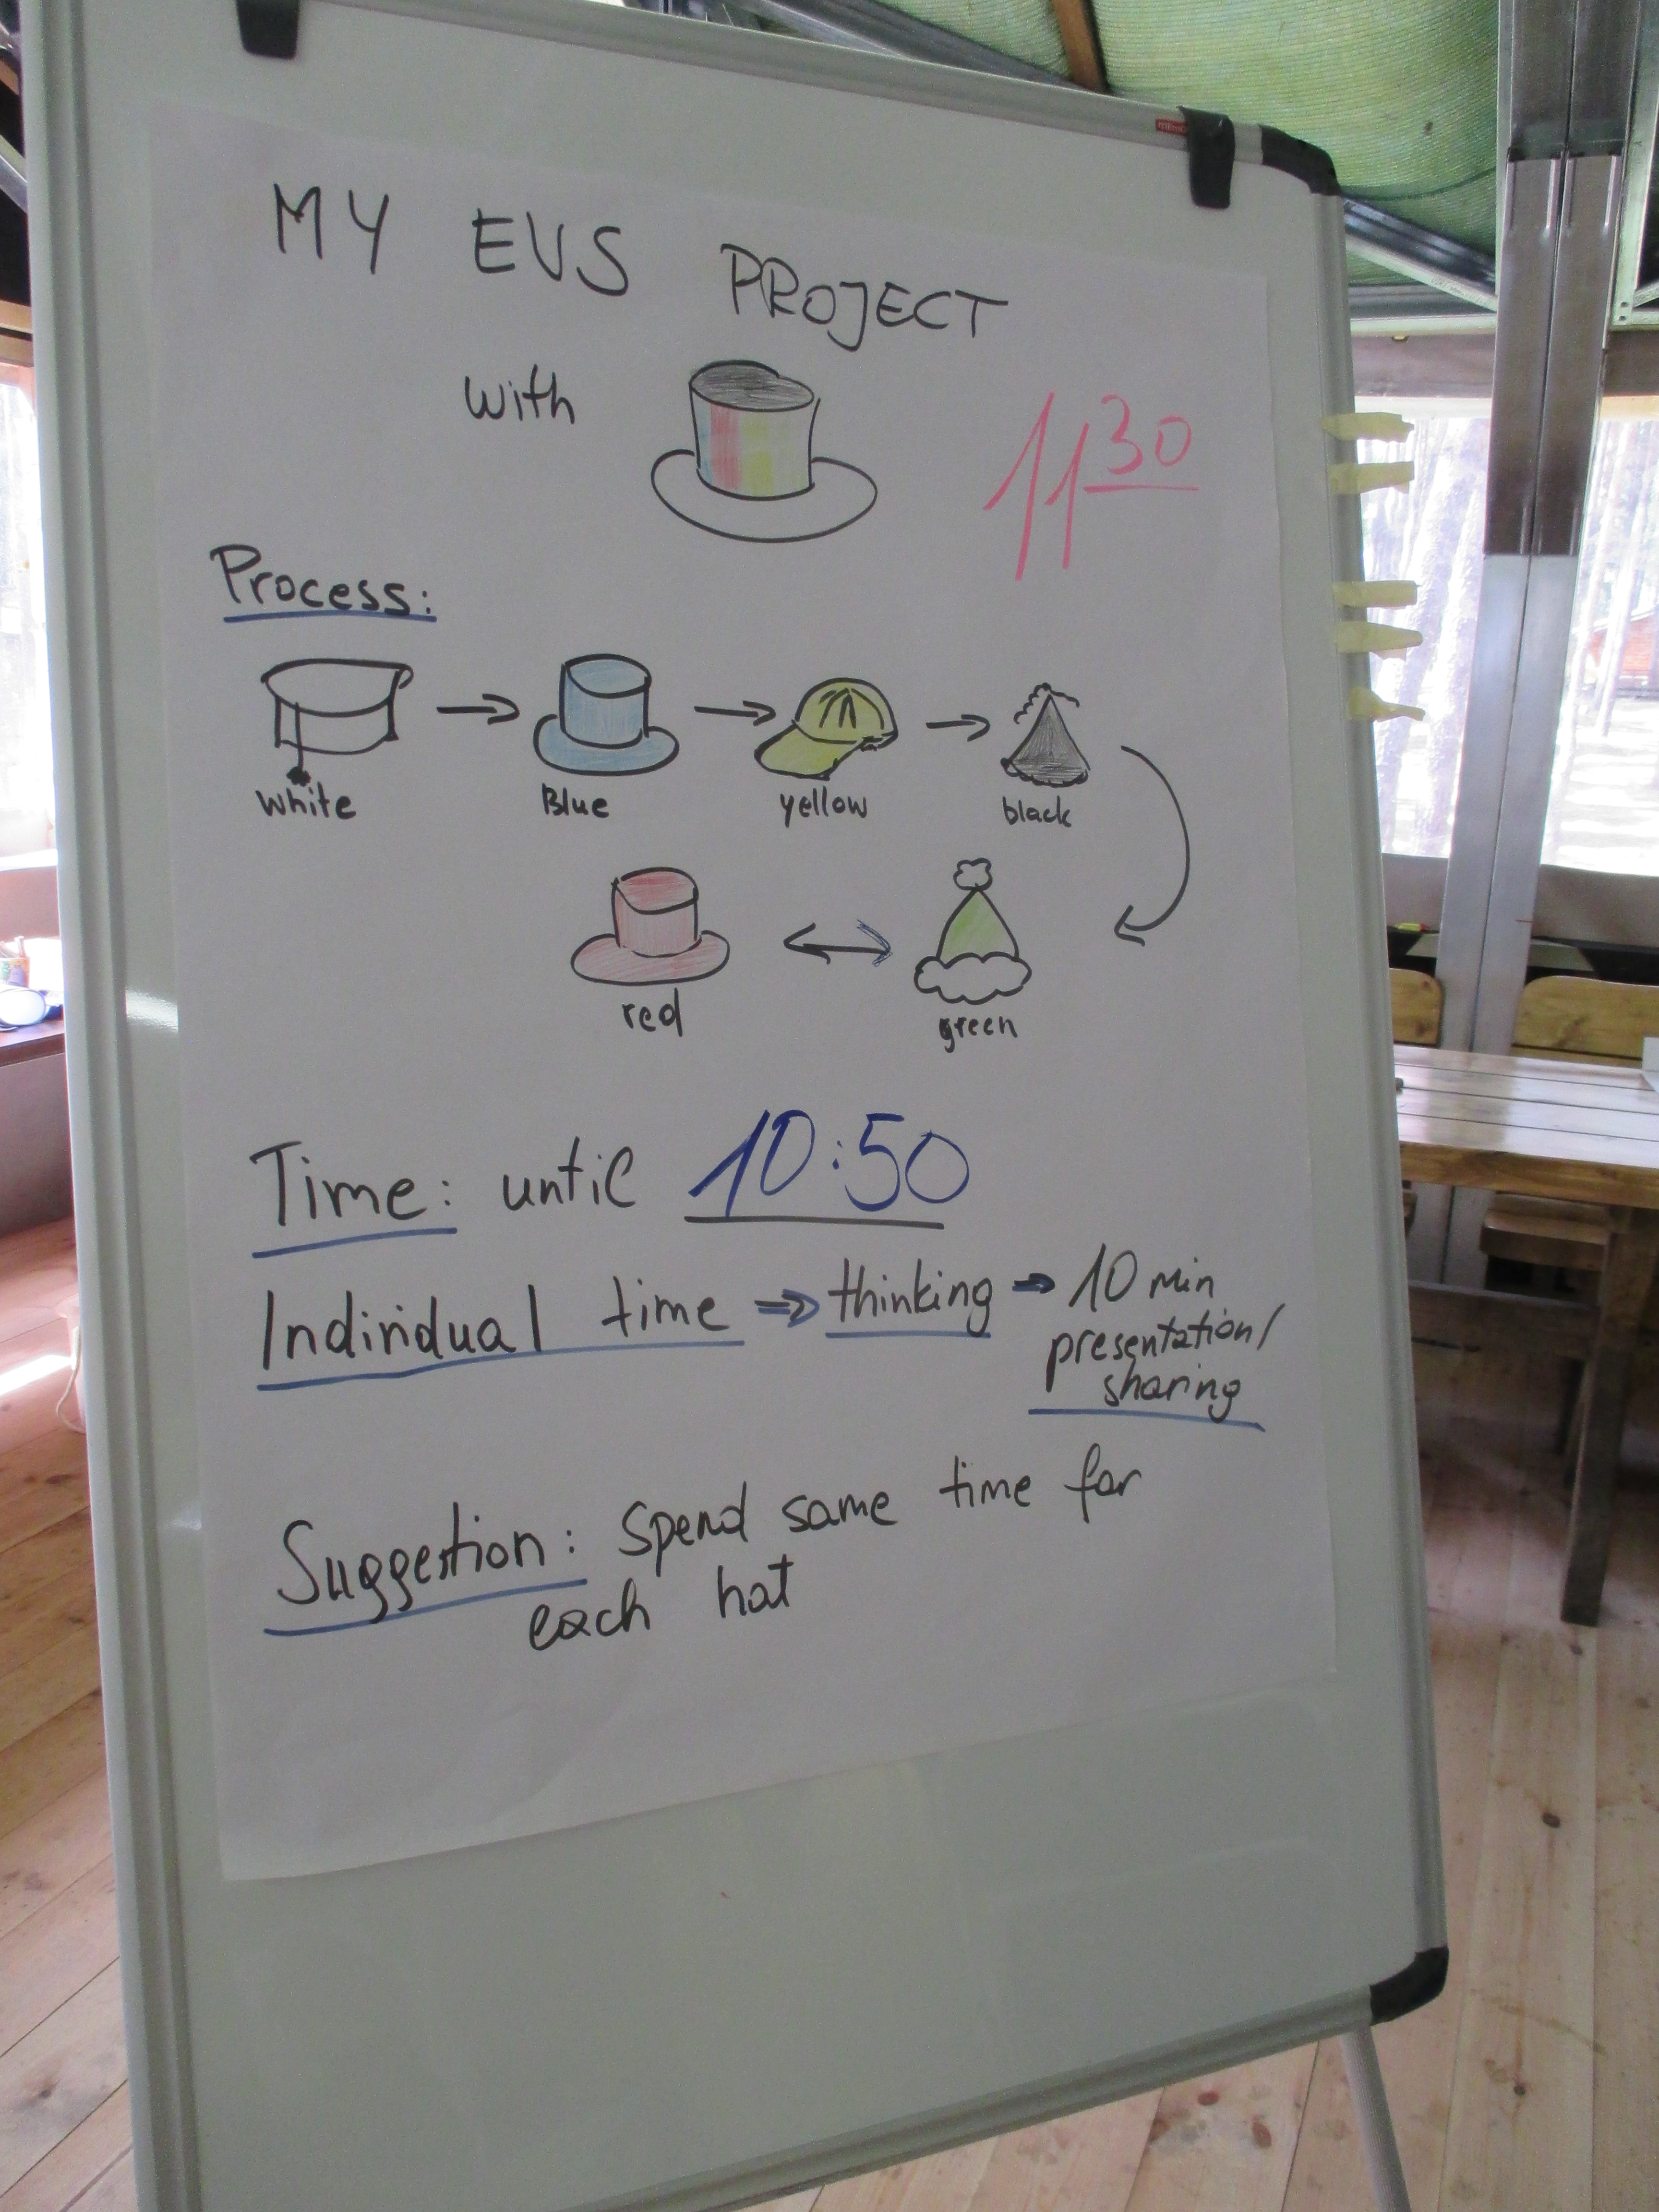 MY EVS PROJECT
with
11 30
Process:
white
Blue
yellow
black
red
green
Time: until 10:50
Individual time ⇒ thinking → 10 min
presentation/
sharing
Suggestion: spend same time for
each hat